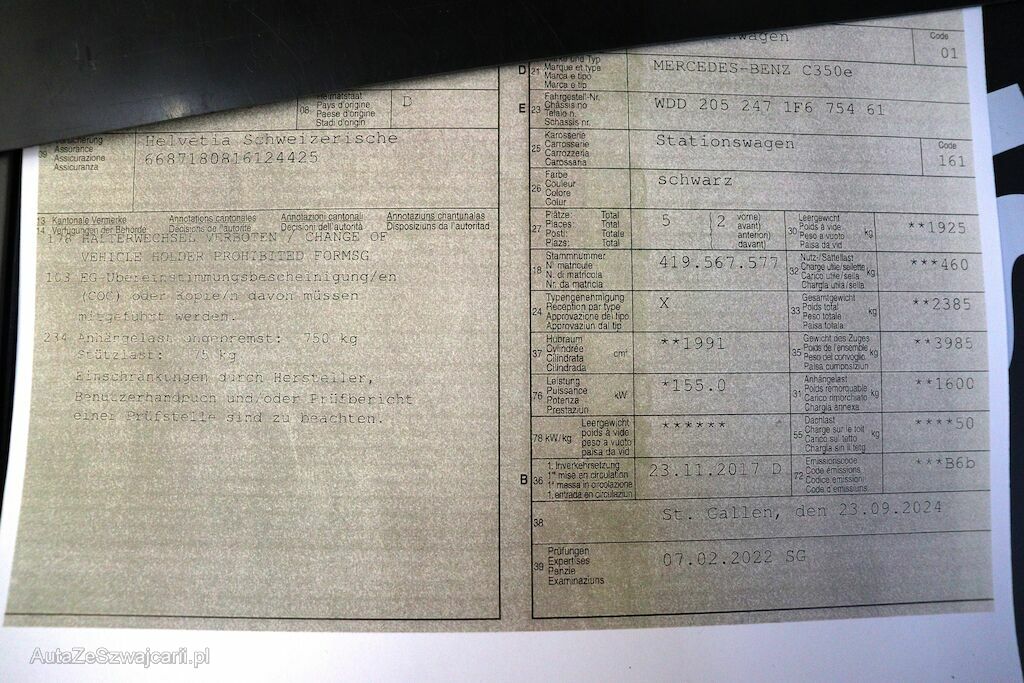 nwagen
Code
01
D
21
Marke und Typ
Marque et type
Marca e tipo
Marca e tip
MERCEDES-BENZ C350e
08
Heimatstaat
Pays d'origine
Paese d'origine
Stadi d'origin
D
E
23
Fahrgestell-Nr.
Châssis no
Telaio n.
Schassis nr.
WDD 205 247 1F6 754 61
09
Versicherung
Assurance
Assicurazione
Assicuranza
Helvetia Schweizerische
6687180816124425
25
Karosserie
Carrosserie
Carrozzeria
Carossaria
Stationswagen
Code
161
26
Farbe
Couleur
Colore
Colur
schwarz
13 Kantonale Vermerke Annotations cantonales Annotazioni cantonali Annotaziuns chantunalas
14 Verfügungen der Behörde Décisions de l'autorité Decisioni dell'autorità Disposiziuns da l'autoritad
178 HALTERWECHSEL VERBOTEN CHANGE OF
VEHICLE HOLDER PROHIBITED FORMSG
183 EG-Übereinstimmungsbescheinigung/en
(COC) oder Kopie/n davon müssen
mitgeführt werden.
234 Anhängelast ungebremst: 750 kg
Stützlast: 75 kg
Einschränkungen durch Hersteller,
Benutzerhandbuch und/oder Prüfbericht
einer Prüfstelle sind zu beachten.
27
Plätze: Total
Places: Total
Posti: Totale
Plazs: Total
5 (2
vorne)
avant)
anteriori)
davant)
30
Leergewicht
Poids à vide
Peso a vuoto
Paisa da vid
kg
**1925
18
Stammnummer
N° matricule
N. di matricola
Nr. da matricla
419.567.577
32
Nutz-/Sattellast
Charge utile/sellette
Carico utile/sella
Chargia utila/sella
kg
***460
24
Typengenehmigung
Réception par type
Approvazione del tipo
Approvaziun dal tip
X
33
Gesamtgewicht
Poids total
Peso totale
Paisa totala
kg
**2385
37
Hubraum
Cylindrée
Cilindrata
Cilindrada
cm³
**1991
35
Gewicht des Zuges
Poids de l'ensemble
Peso del convoglio
Paisa cumposiziun
kg
**3985
76
Leistung
Puissance
Potenza
Prestaziun
kW
*155.0
31
Anhängelast
Poids remorquable
Carico rimorchiato
Chargia annexa
kg
**1600
78 kW/kg
Leergewicht
poids à vide
peso a vuoto
paisa da vid
******
55
Dachlast
Charge sur le toit
Carico sul tetto
Chargia sin il tetg
kg
****50
B
36
1. Inverkehrsetzung
1re mise en circulation
1a messa in circolazione
1. entrada en circulaziun
23.11.2017 D
72
Emissionscode
Code émissions
Codice emissioni
Code d'emissiuns
***B6b
38
St. Gallen, den 23.09.2024
39
Prüfungen
Expertises
Perizie
Examinaziuns
07.02.2022 SG
AutaZeSzwajcarii.pl